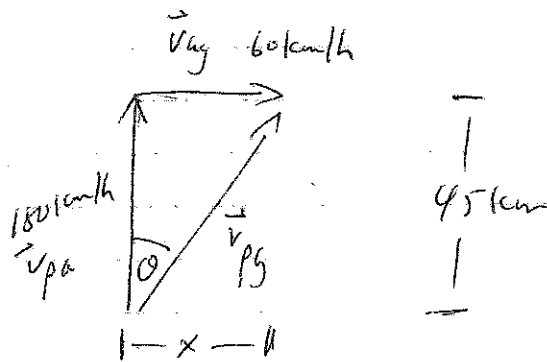 v⃗ag 60 km/h
180 km/h
v⃗pa
θ
v⃗pg
45 km
x